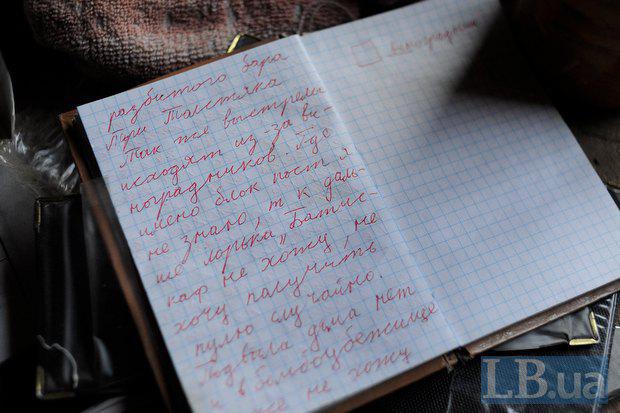 разбитого бара
Три Толстяка
Так же выстрелы
исходят из-за ви-
ноградников. Где
имено блок пост я
не знаю, т к даль-
ше ларька „Батис-
каф не хожу, не
хочу получить
пулю случайно.
Подвала дома нет
и в бомбоубежище
не хожу
виноградник
LB.ua